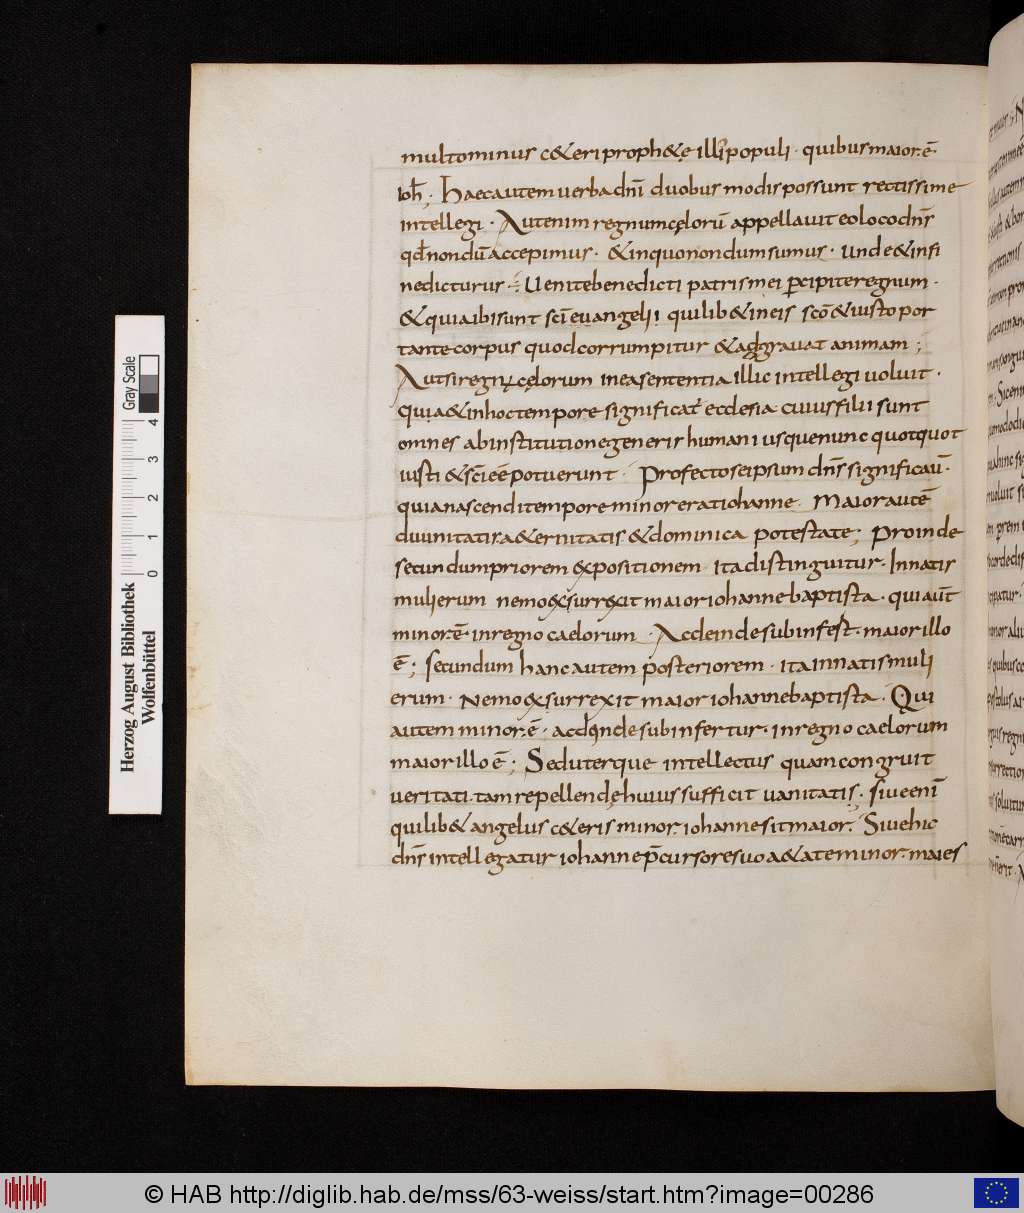 multo minus ceteri prophetę illi populi · quibus maior ē
ioħ; Haec autem uerba dn̄i duobus modis possunt rectissime
intellegi · Aut enim regnum cęlorū appellauit eo loco dn̄s
qđ nondū accepimus · & in quo nondum sumus · unde & in fi
ne dicturus · Uenite benedicti patris mei ꝑcipite regnum ·
& quia ibi sunt sc̄i euangeli quilib& in eis sc̄o & iusto por
tante corpus quod corrumpitur & adgrauat animam ;
Aut si regnū cęlorum in ea sententia illic intellegi uoluit ·
quia & in hoc tempore significat ecclesia cuius filii sunt
omnes ab institutione generis humani usque nunc quotquot
iusti & sc̄i eē potuerunt · Profecto se ipsum dn̄s significau̅ ·
quia nascendi tempore minor erat iohanne · Maior autē
diuinitatis a&ernitatis & dominica potestate; Proinde
secundum priorem expositionem ita distinguitur · In natis
mulierum nemo exsurrexit maior iohanne baptista · qui aūt
minor ē in regno caelorum · Ac deinde subinfest · maior illo
ē ; secundum hanc autem posteriorem · ita in natis muli
erum · Nemo exsurrexit maior iohanne baptista · Qui
autem minor ē · ac deinde subinfertur · in regno caelorum
maior illo ē ; Sed uterque intellectus quam congruit
ueritati · tam repellendę huius sufficit uanitatis; siue enī
quilib& angelus c&eris minor iohanne sit maior · Siue hic
dn̄s intellegatur iohanne p̄cursore suo a&ate minor · maies
Herzog August Bibliothek
Wolfenbüttel
Gray Scale
0 1 2 3 4
© HAB http://diglib.hab.de/mss/63-weiss/start.htm?image=00286